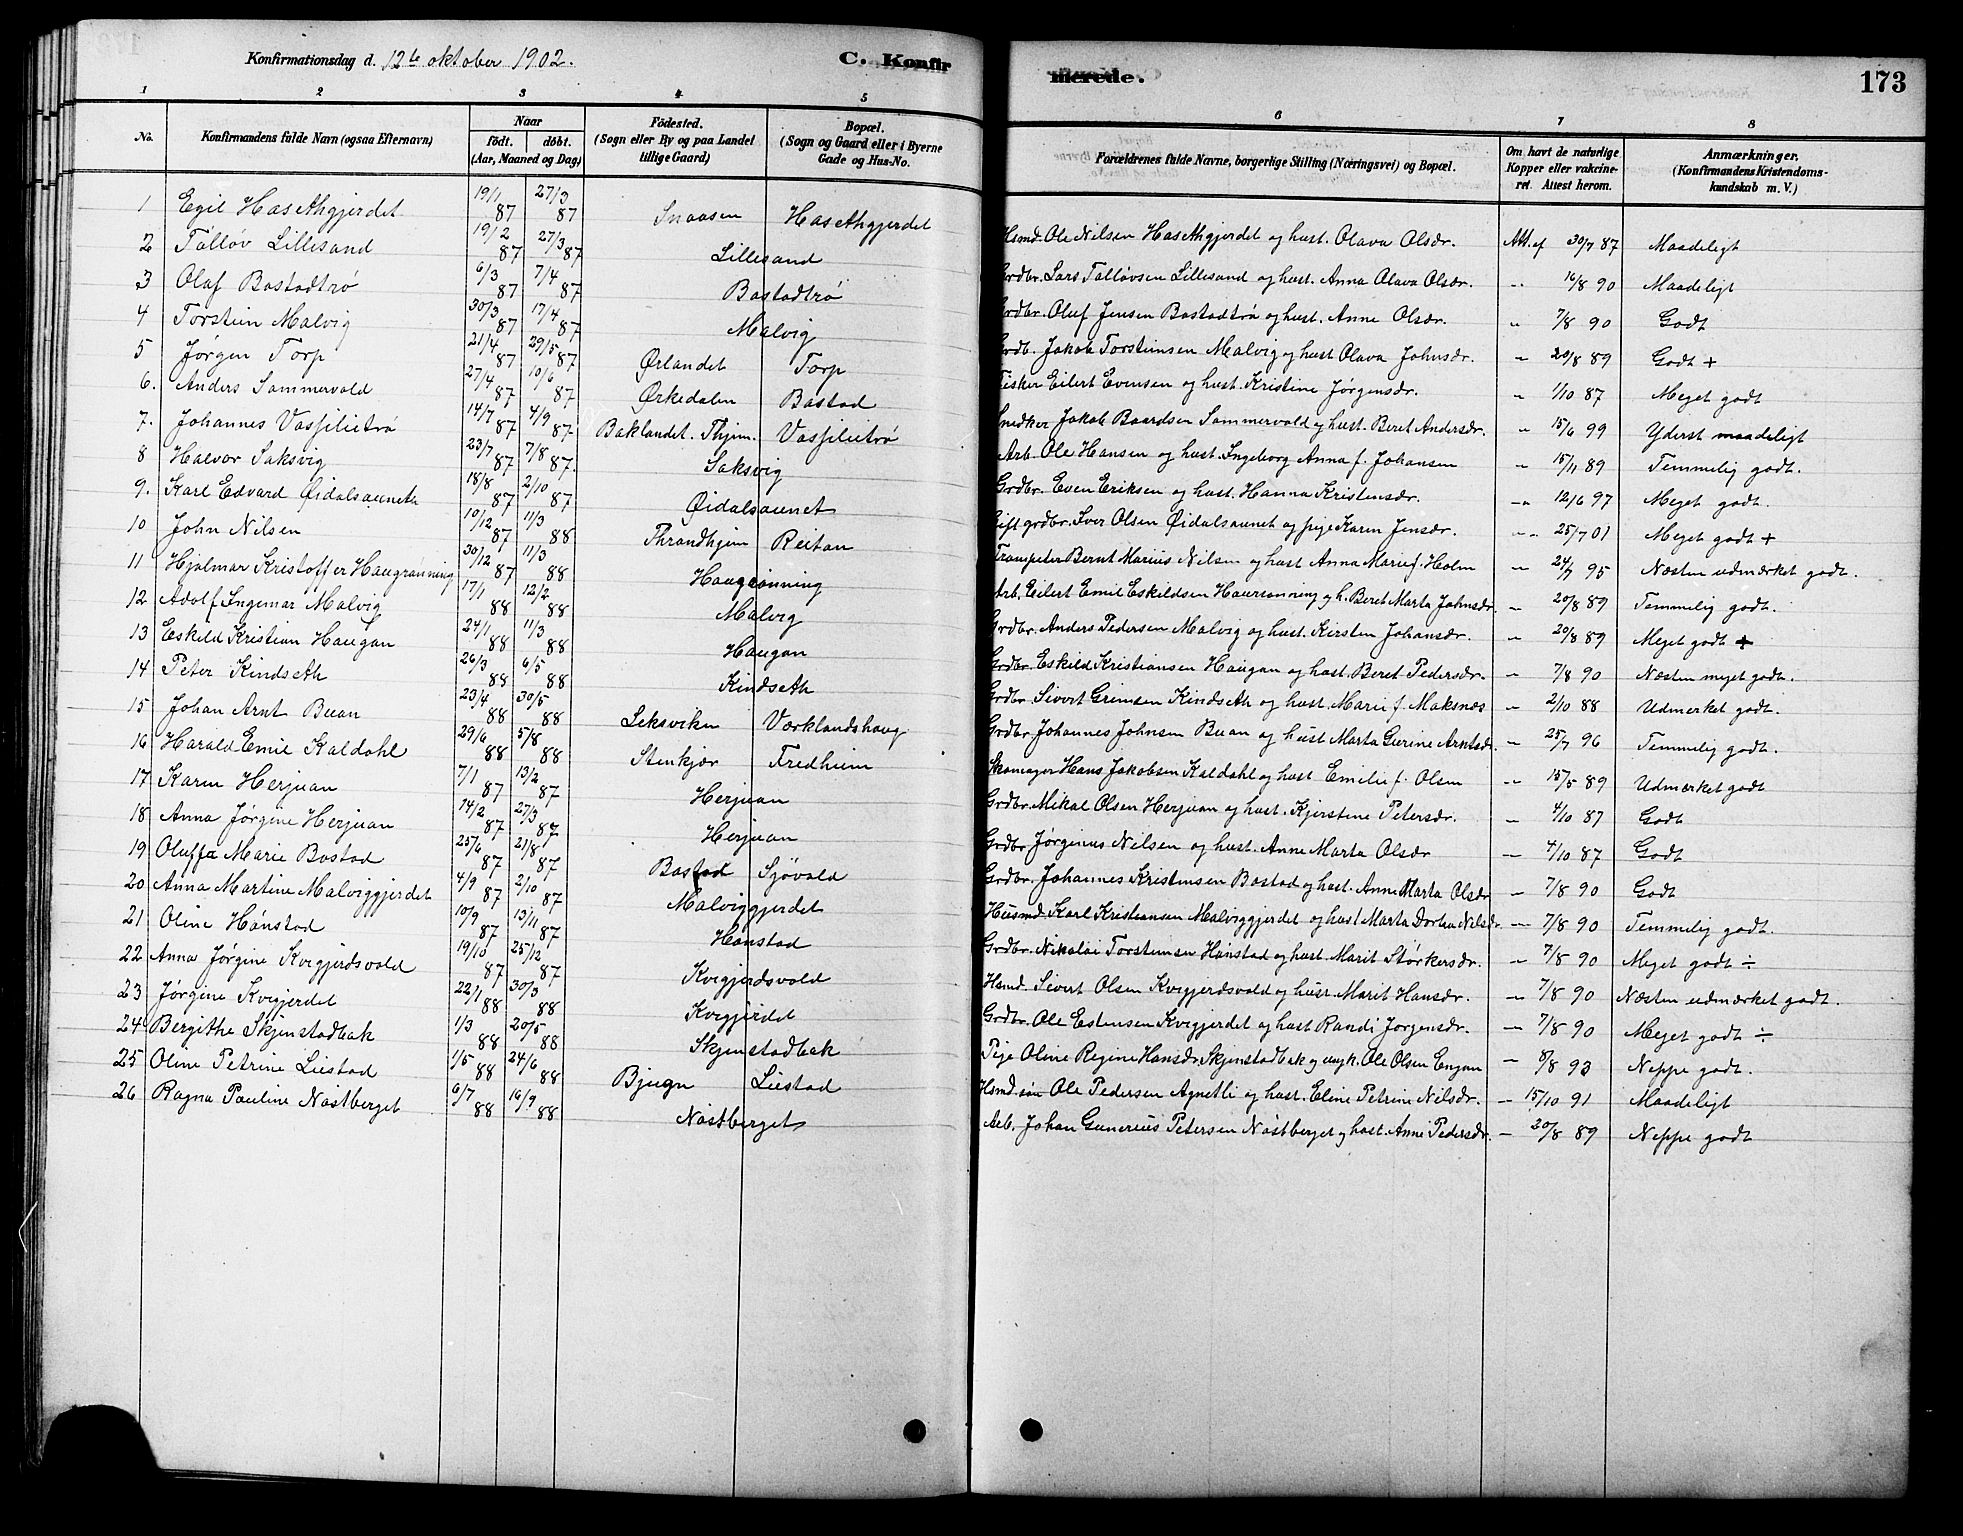 Konfirmationsdag d. 12te oktober 1902.
C. Konfirmerede.
173
1 2 3 4 5 6 7 8
No. Konfirmandens fulde Navn (ogsaa Efternavn) Naar født. døbt. (Aar, Maaned og Dag) Fødested. (Sogn eller By og paa Landet tillige Gaard) Bopæl. (Sogn og Gaard eller i Byerne Gade og Hus-No. Forældrenes fulde Navne, borgerlige Stilling (Næringsvei) og Bopæl. Om havt de naturlige Kopper eller vakcineret. Attest herom. Anmærkninger. (Konfirmandens Kristendomskundskab m. V.)
1 Egil Hasethgjerdet 19/1 87 27/3 87 Snaasen Hasethgjerdet Hsmd. Ole Nilsen Hasethgjerdet og hust. Olava Olsdr. Att. af 30/7 87 Maadeligt
2 Талløv Lillesand 19/2 87 27/3 87 Lillesand Grdbr. Lars Talløvsen Lillesand og hust. Anna Olava Olsdr. " 16/8 90 Maadeligt
3 Olaf Bostadtrø 6/3 87 7/4 87 Bostadtrø Grdbr. Oluf Jensen Bostadtrø og hust. Anne Olsdr. " 7/8 90 Godt
4 Torstein Malvig 30/3 87 17/4 87 Malvig Grdb. Jakob Torsteinsen Malvig og hust Olava Johnsdr. " 20/8 89 Godt +
5 Jørgen Torp 21/4 87 29/5 87 Ørlandet Torp Fisker Eilert Evensen og hust. Kristine Jørgensdr. " 1/10 87 Meget godt
6. Anders Sommervold 27/4 87 10/6 87 Ørkedalen Bostad Snedker Jakob Baardsen Sommervold og hust. Beret Andersdr. " 15/6 99 Yderst maadeligt
7. Johannes Vasslietrø 14/7 87 4/9 87 Baklandet. Thjem. Vasslietrø Arb. Ole Hansen og hust. Ingeborg Anna f. Johansen " 15/11 89 Temmelig godt.
8 Halvor Saksvig 23/7 87 7/8 87. Saksvig Grdbr. Even Eriksen og hust. Hanna Kristensdr. " 12/6 97 Meget godt.
9. Karl Edvard Øidalsauneth 18/8 87 2/10 87 Øidalsaunet Gift grdbr. Iver Olsen Øidalsaunet og pige Karen Jensdr. " 25/7 01 Meget godt +
10 John Nilsen 10/12 87 11/3 88 Thrandhjem Reitan Trompeter Bernt Marius Nilsen og hust Anna Marie f. Holm " 24/7 95 Næsten udmærket godt.
11 Hjalmar Kristoffer Haugrønning 30/12 87 11/3 88 Haugrønning Arb. Eilert Emil Eskildsen Haugrønning og h. Beret Marta Johnsdr. " 20/8 89 Temmelig godt.
12 Adolf Ingemar Malvig 17/1 88 12/2 88 Malvig Grdbr. Anders Pedersen Malvig og hust. Kirsten Johansdr. " 20/8 89 Meget godt +
13 Eskild Kristian Haugan 24/1 88 11/3 88 Haugan Grdbr. Eskild Kristiansen Haugan og hust. Beret Pedersdr. " 7/8 90 Næsten meget godt.
14 Peter Kindseth 26/3 88 6/5 88 Kindseth Grdbr Sivert Grimsen Kindseth og hust. Marie f. Maksnæs " 2/10 88 Udmerket godt.
15 Johan Arnt Buan 23/4 88 30/5 88 Leksviken Værklandshaug Grdbr Johannes Johnsen Buan og hust Marta Gurine Arntsdr. " 25/7 96 Temmelig godt.
16 Harald Emil Kaldahl 29/6 88 5/8 88 Stenkjær Fredheim Skomager Hans Jakobsen Kaldahl og hust. Emilie f. Olsen " 15/5 89 Udmerket godt
17 Karen Herjuan 7/1 87 13/2 87 Herjuan Grdbr. Mikal Olsen Herjuan og hust. Kjerstine Petersdr. " 4/10 87 Godt
18 Anna Jørgine Herjuan 14/2 87 27/3 87 Herjuan Grdbr. Jørginus Nilsen og hust. Anne Marta Olsdr " 4/10 87 Godt
19 Oluffa Marie Bostad 25/6 87 21/8 87 Bostad Sjøvold Grdbr. Johannes Kristensen Bostad og hust. Anne Marta Olsdr " 7/8 90 Godt
20 Anna Martine Malviggjerdet 4/9 87 2/10 87 Malviggjerdet Husmd. Karl Kristiansen Malviggjerdet og hust Marta Dortea Nilsdr. " 7/8 90 Temmelig godt.
21 Oline Hønstad 10/9 87 13/11 87 Hønstad Grdbr. Nikolai Torstensen Hønstad og hust. Marit Størkersdr. " 7/8 90 Meget godt ÷
22 Anna Jørgine Kvigjerdsvold 19/10 87 25/12 87 Kvigjerdsvold Hsmd. Sivert Olsen Kvigjerdsvold og hust. Marit Hansdr. " 7/8 90 Næsten udmærket godt.
23 Jørgine Kvigjerdet 22/1 88 30/3 88 Kvigjerdet Grdbr. Ole Estensen Kvigjerdet og hust Randi Jørgensdr. " 7/8 90 Meget godt ÷
24 Bergithe Skjenstadbak 1/3 88 20/5 88 Skjenstadbak Pige Oline Regine Hansdr. Skjenstadbak og ungk. Ole Olsen Engan " 8/8 93 Neppe godt.
25 Oline Petrine Liestad 1/5 88 24/6 88 Bjugn Liestad Hsmd. søn Ole Pedersen Agnetli og hust. Eline Petrine Nilsdr. " 15/10 91 Maadeligt
26 Ragna Pauline Nøstberget 6/7 88 16/9 88 Nøstberget Arb. Johan Gunerius Petersen Nøstberget og hust. Anne Pedersdr. " 20/8 89 Neppe godt